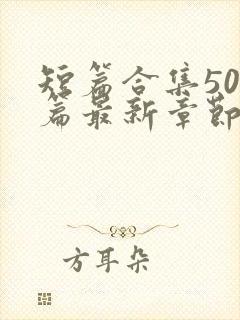 短篇合集50
篇最新章節
方耳朵